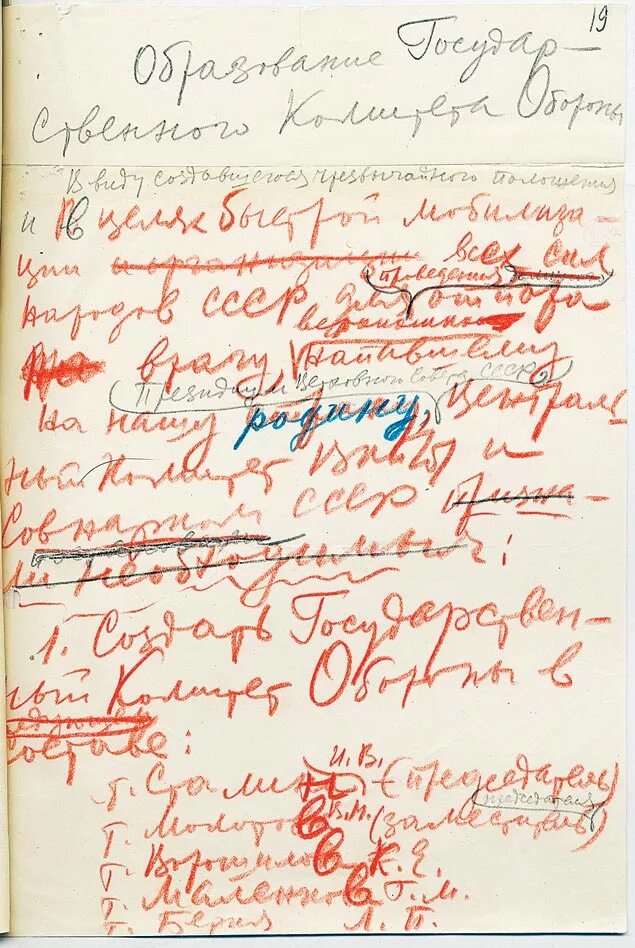 19
Образование Государ-
ственного Комитета Обороны
В виду создавшегося чрезвычайного положения
и В целях быстрой мобилиза-
ции и организации всех сил
проведения
народов СССР для отпора
вероломно
врагу, напавшему
Президиум Верховного Совета СССР,
на нашу родину, Централь
ный Комитет ВКП(б) и
Совнарком СССР призна-
ли необходимым:
1. Создать Государствен-
ный Комитет Обороны в
составе:
т. Сталин И. В. (председатель)
председателя
т. Молотов В. М. (заместитель)
т. Ворошилов К. Е.
т. Маленков Г. М.
т. Берия Л. П.